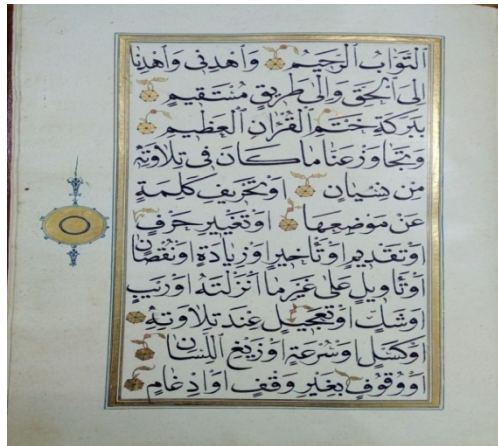 التَّوَّابُ الرَّحِيمُ وَاهْدِنِي وَاهْدِنَا
إِلَى الْحَقِّ وَإِلَى طَرِيقٍ مُسْتَقِيمٍ
بِبَرَكَةِ خَتْمِ الْقُرْآنِ الْعَظِيمِ
وَتَجَاوَزْ عَنَّا مَا كَانَ فِي تِلَاوَتِهِ
مِنْ نِسْيَانٍ أَوْ تَحْرِيفِ كَلِمَةٍ
عَنْ مَوْضِعِهَا أَوْ تَغْيِيرِ حَرْفٍ
أَوْ تَقْدِيمٍ أَوْ تَأْخِيرٍ أَوْ زِيَادَةٍ أَوْ نُقْصَانٍ
أَوْ تَأْوِيلٍ عَلَى غَيْرِ مَا أَنْزَلْتَهُ أَوْ رَيْبٍ
أَوْ شَكٍّ أَوْ تَعْجِيلٍ عِنْدَ تِلَاوَتِهِ
أَوْ كَسَلٍ أَوْ سُرْعَةٍ أَوْ زَيْغِ اللِّسَانِ
أَوْ وُقُوفٍ بِغَيْرِ وَقْفٍ أَوْ إِدْغَامٍ